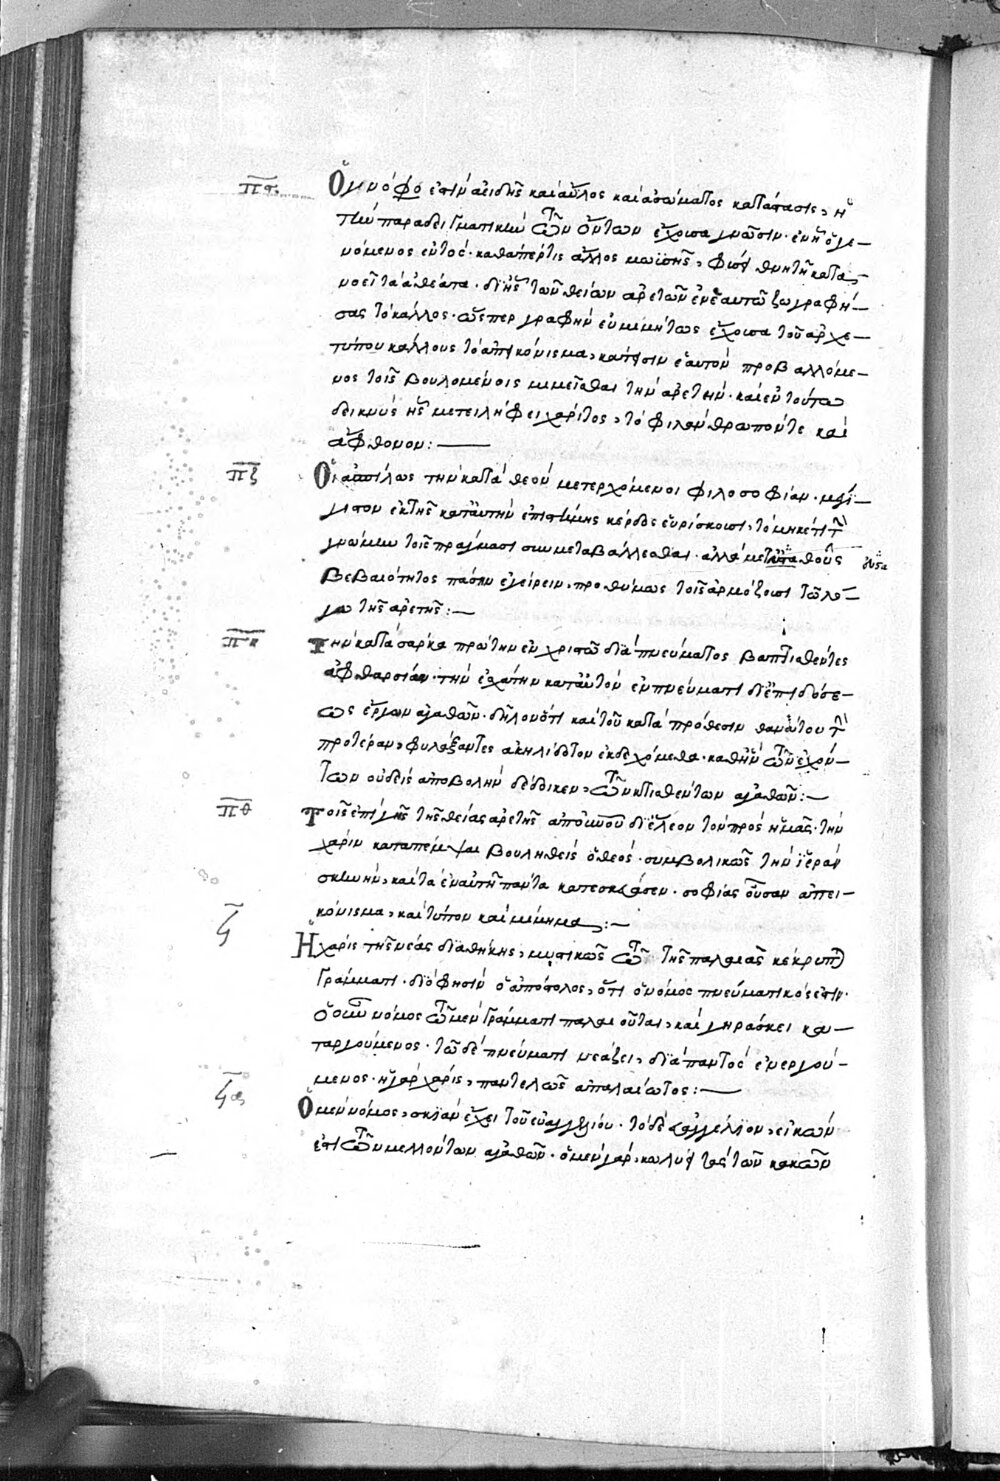 πϛ
Ὁ γνόφός ἐστιν ἀειδὴς καὶ ἄϋλος καὶ ἀσώματος κατάστασις, ἡ
τὴν παραδειγματικὴν τῶν ὄντων ἔχουσα γνῶσιν· ἐν ᾗ ὁ γε-
νόμενος ἐντὸς· καθάπέρ τις ἄλλος μωϊσῆς, φύσει θνητῇ κατα-
νοεῖ τὰ ἀθέατα· δι' ἧς τῶν θείων ἀρετῶν ἐν ἑαυτῷ ζωγραφή-
σας τὸ κάλλος· ὥσπερ γραφὴν εὐμιμήτως ἔχουσαν τοῦ ἀρχε-
τύπου κάλλους τὸ ἀπεικόνισμα, κάτεισιν ἑαυτὸν προβαλλόμε-
νος τοῖς βουλομένοις μιμεῖσθαι τὴν ἀρετήν· καὶ ἐν τούτω
δεικνὺς ἧς μετειλήφει χάριτος, τὸ φιλάνθρωπόν τε καὶ
ἄφθονον:
πζ
Οἱ ἀσπίλως τὴν κατὰ θεὸν μετερχόμενοι φιλοσοφίαν· μέ-
γιστον ἐκ τῆς κατ' αὐτὴν ἐπιστήμης κέρδος εὑρίσκουσι, τὸ μηκέτι τὴν
γνώμην τοῖς πράγμασι συμμεταβάλλεσθαι· ἀλλὰ μετὰ σταθηρᾶς
βεβαιότητος πᾶσιν ἐγχειρεῖν, προθύμως τοῖς ἁρμόζουσι τῶ λό-
γω τῆς ἀρετῆς:
πη
Τὴν κατὰ σάρκα πρώτην ἐν χριστῶ διὰ πνεύματος βαπτισθέντες
ἀφθαρσίαν· τὴν ἐσχάτην κατ' αὐτὸν ἐν πνεύματι δι' ἐπιδόσε-
ως ἔργων ἀγαθῶν· δηλονότι καὶ τοῦ κατὰ πρόθεσιν θανάτου τὴν
προτέραν, φυλάξαντες ἀκηλίδωτον ἐκδεχόμεθα· καθ' ἣν τῶν ἐχόν-
των οὐδεὶς ἀποβολὴν δέδοικεν, τῶν κτισθέντων ἀγαθῶν:
πθ
Τοῖς ἐπὶ γῆς τῆς θείας ἀρετῆς ἀπ' οὐρανοῦ δι' ἔλεον τὸν πρὸς ἡμᾶς· τὴν
χάριν καταπέμψαι βουληθεὶς ὁ θεὸς· συμβολικῶς τὴν ἱερὰν
σκηνὴν, καὶ τὰ ἐν αὐτῆ πάντα κατεσκεύασεν· σοφίας οὖσαν ἀπει-
κόνισμα, καὶ τύπον καὶ μίμημα:
ϟ
Ἡ χάρις τῆς νέας διαθήκης, μυστικῶς τῶ τῆς παλαιᾶς κέκρυπται
γράμματι· διὸ φησὶν ὁ ἀπόστολος, ὅτι ὁ νόμος πνευματικός ἐστιν·
ὁ οὖν νόμος τῶ μὲν γράμματι παλαιοῦται, καὶ γηράσκει κα-
ταργούμενος· τῶ δὲ πνεύματι νεάζει, διαπαντὸς ἐνεργού-
μενος· ἡ γὰρ χάρις, παντελῶς ἀπαλαίωτος:
ϟα
Ὁ μὲν νόμος, σκιὰν ἔχει τοῦ εὐαγγελίου· τὸ δὲ εὐαγγέλιον, εἰκών
ἐστι τῶν μελλόντων ἀγαθῶν· ὁ μὲν γὰρ, κωλύει τὰς τῶν κακῶν